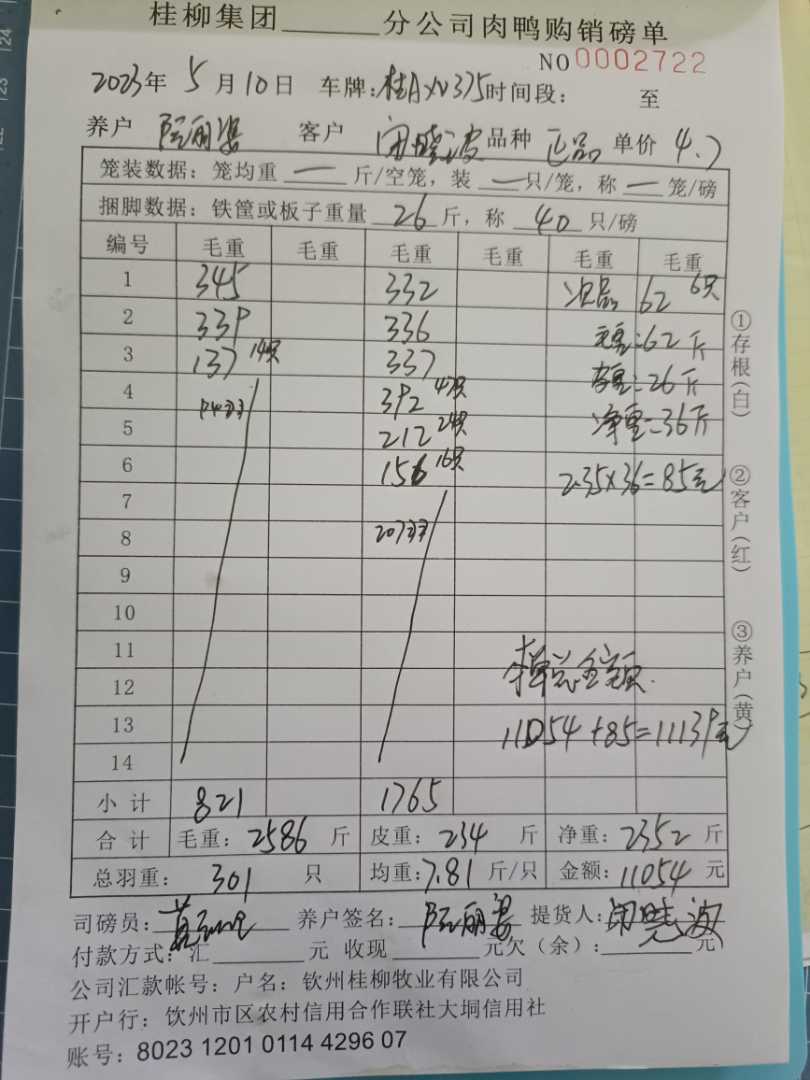 桂柳集团______分公司肉鸭购销磅单
NO 0002722
2023年 5月10日 车牌:桂AXV375时间段: 至
养户 阮丽姿 客户 闭晓波 品种 正品 单价 4.7
笼装数据: 笼均重 一 斤/空笼, 装 一 只/笼, 称 一 笼/磅
捆脚数据: 铁筐或板子重量 26 斤, 称 40 只/磅
编号 毛重 毛重 毛重 毛重 毛重 毛重
1 345 332 次品 62 6只
2 339 336 毛重:62斤
3 137 14只 337 皮重:26斤
4 94羽 392 47只 净重=36斤
5 212 24只
6 156 16只 2.35×36=85元
7
8 207羽
9
10
11 本单总金额.
12
13 11054+85=11139元
14
小计 821 1765
合计 毛重: 2586 斤 皮重: 234 斤 净重: 2352 斤
总羽重: 301 只 均重: 7.81 斤/只 金额: 11054 元
司磅员: 养户签名: 阮丽姿 提货人: 闭晓波
付款方式: 汇______元 收现______元欠(余):______元
公司汇款帐号: 户名: 钦州桂柳牧业有限公司
开户行: 饮州市区农村信用合作联社大垌信用社
账号: 8023 1201 0114 4296 07
①存根(白)
②客户(红)
③养户(黄)